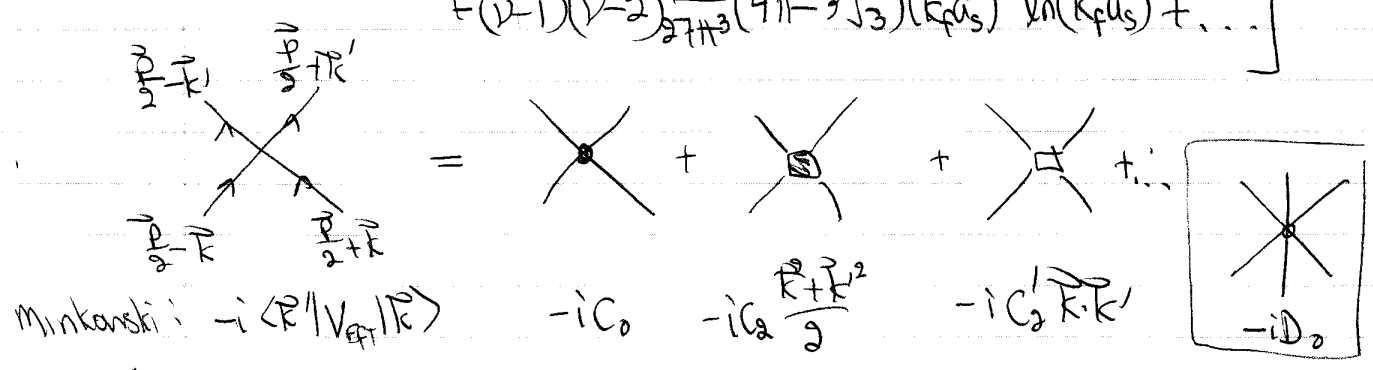 +(ν-1)(ν-2) 1/27π³ (4π-3√3)(k_F a_s)⁴ ln(k_F a_s) + ...]
P⃗/2 - k⃗' P⃗/2 + k⃗'
= + + + ...
P⃗/2 - k⃗ P⃗/2 + k⃗
Minkowski: -i<k⃗'|V_EFT|k⃗> -iC₀ -iC₂ (k⃗²+k⃗'²)/2 -iC₂' k⃗·k⃗' -iD₀